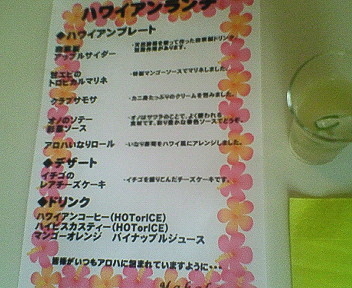 ハワイアンランチ
◆ハワイアンプレート
アップルサイダー
甘エビの
トロピカルマリネ ・特製マンゴーソースでマリネしました。
クラブサモサ ・カニ身たっぷりのクリームを包みました。
オノのソテー ・オノはサワラのことで、よく使われる
アロハいなりロール ・いなり寿司をハワイ風にアレンジしました。
◆デザート
イチゴの
レアチーズケーキ ・イチゴを練りこんだチーズケーキです。
◆ドリンク
ハワイアンコーヒー(HOTorICE)
ハイビスカスティー(HOTorICE)
マンゴーオレンジ パイナップルジュース
皆様がいつもアロハに包まれていますように・・・